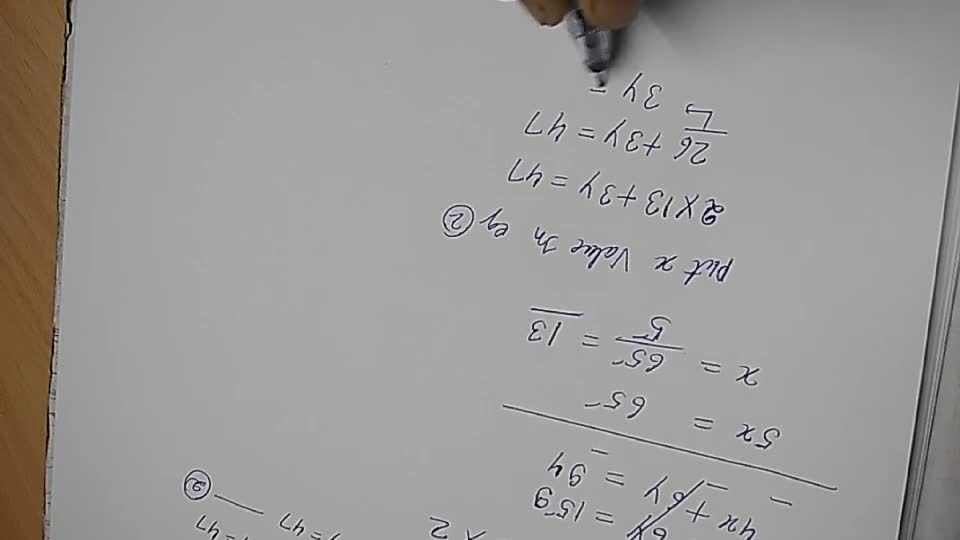 = 47
= 47 — ②
× 2
6y = 159
4x + 6y = 94
5x = 65
x = 65/5 = 13
put x value in eq ②
2 × 13 + 3y = 47
26 + 3y = 47
3y =